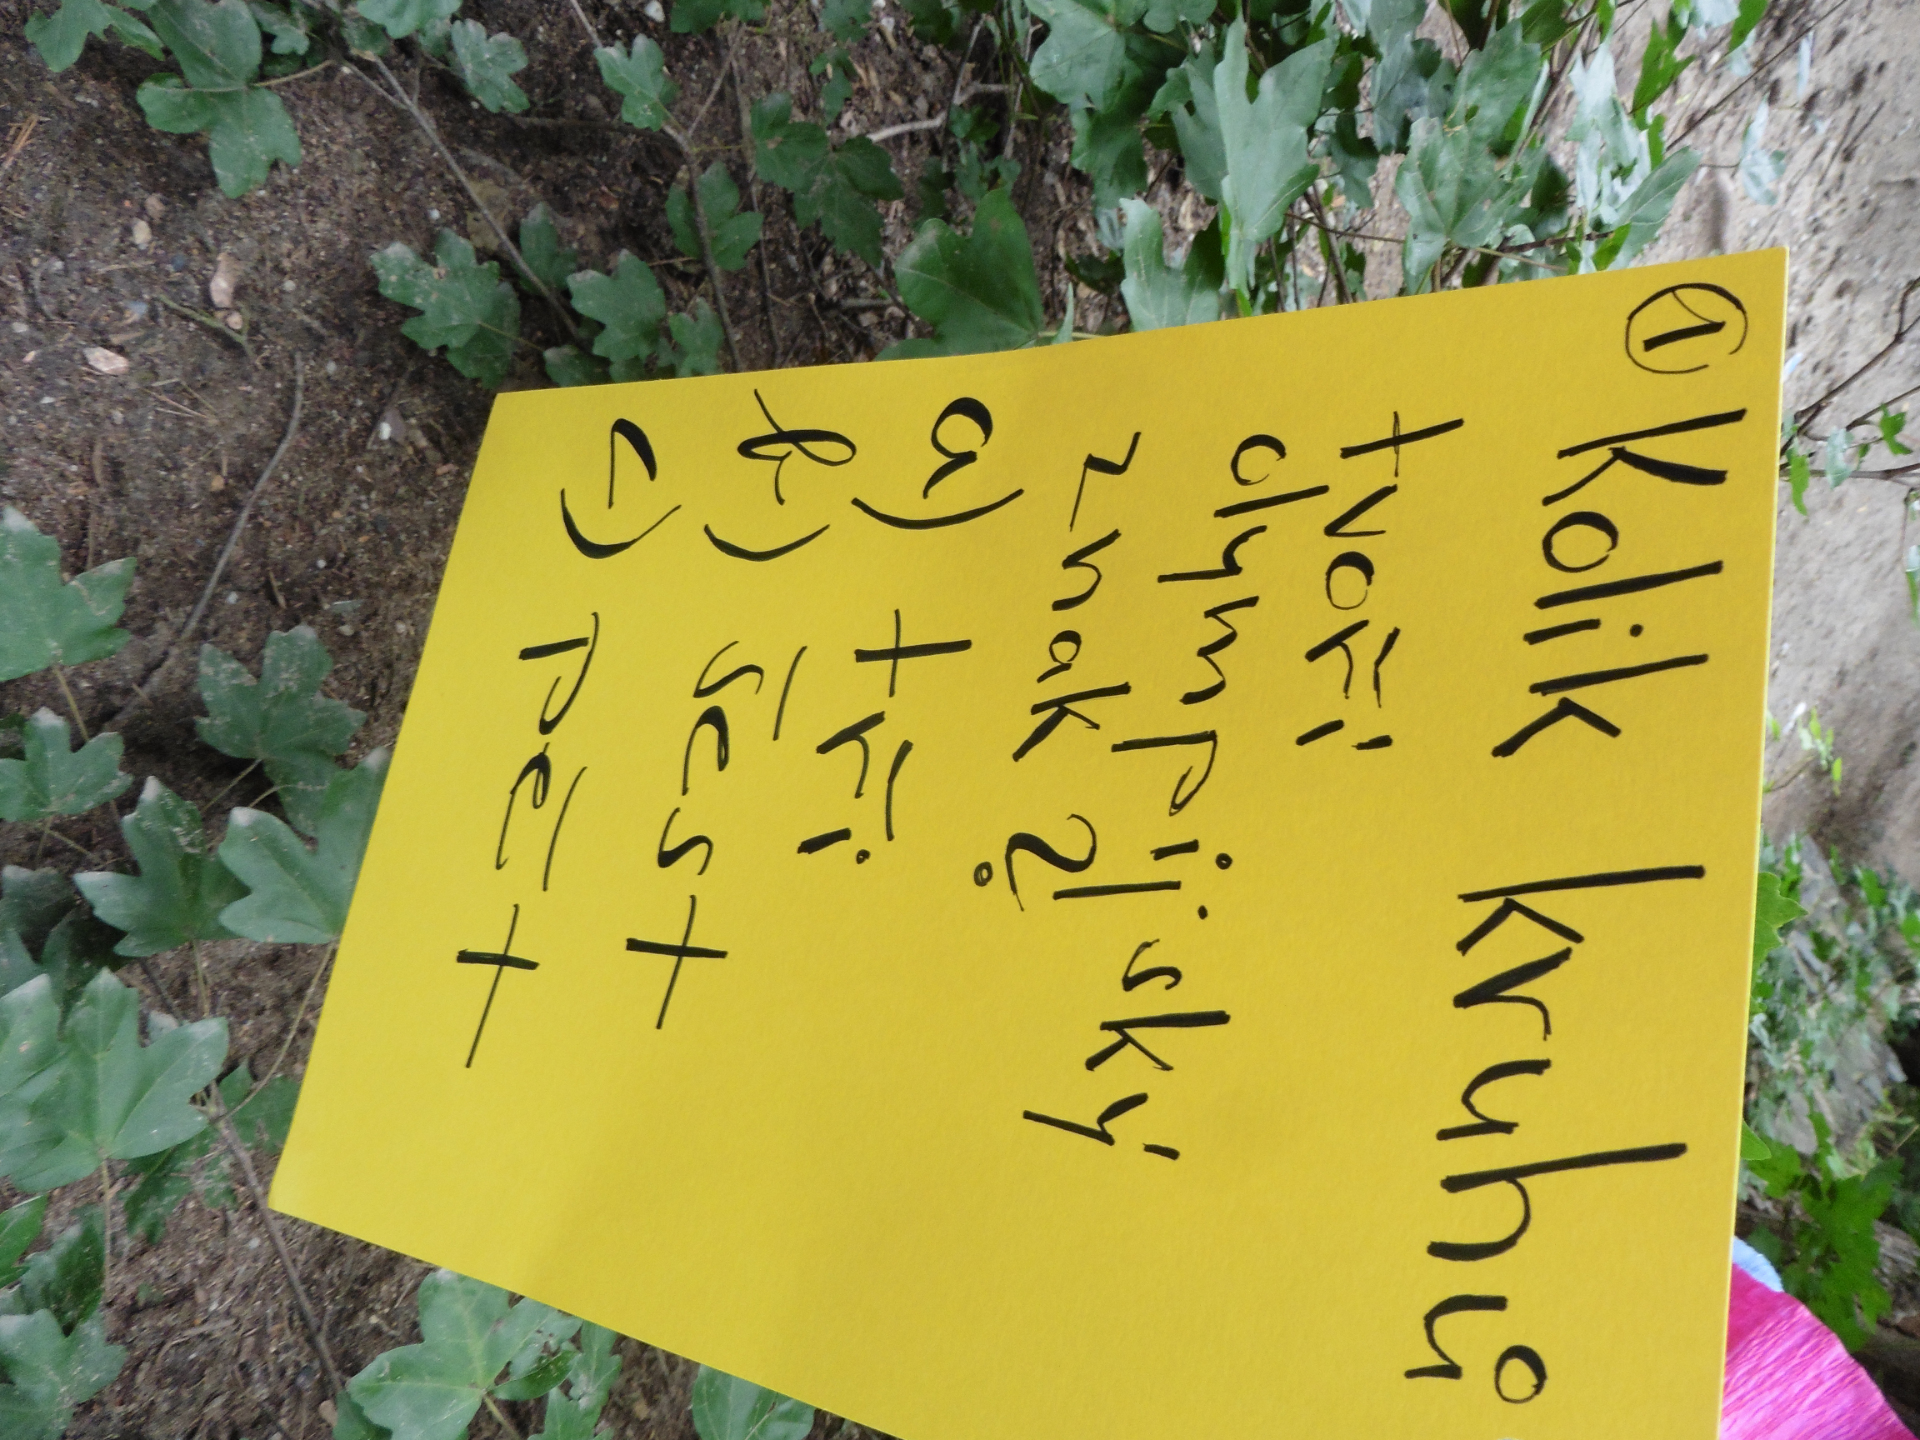 ① Kolik kruhů
tvoří
olympijský
znak?
a) tři
b) šest
c) pět